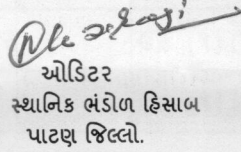 ઓડિટર
સ્થાનિક ભંડોળ હિસાબ
પાટણ જિલ્લો.